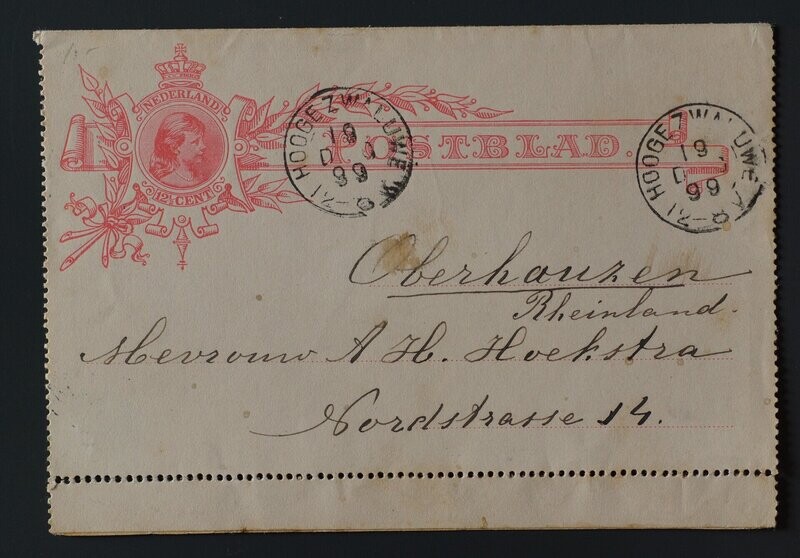 NEDERLAND
12½ CENT
POSTBLAD.
HOOGEZWALUWE
19
99
HOOGEZWALUWE
19
99
Oberhauzen
Rheinland.
Mevrouw A H. Hoekstra
Nordstrasse 14.